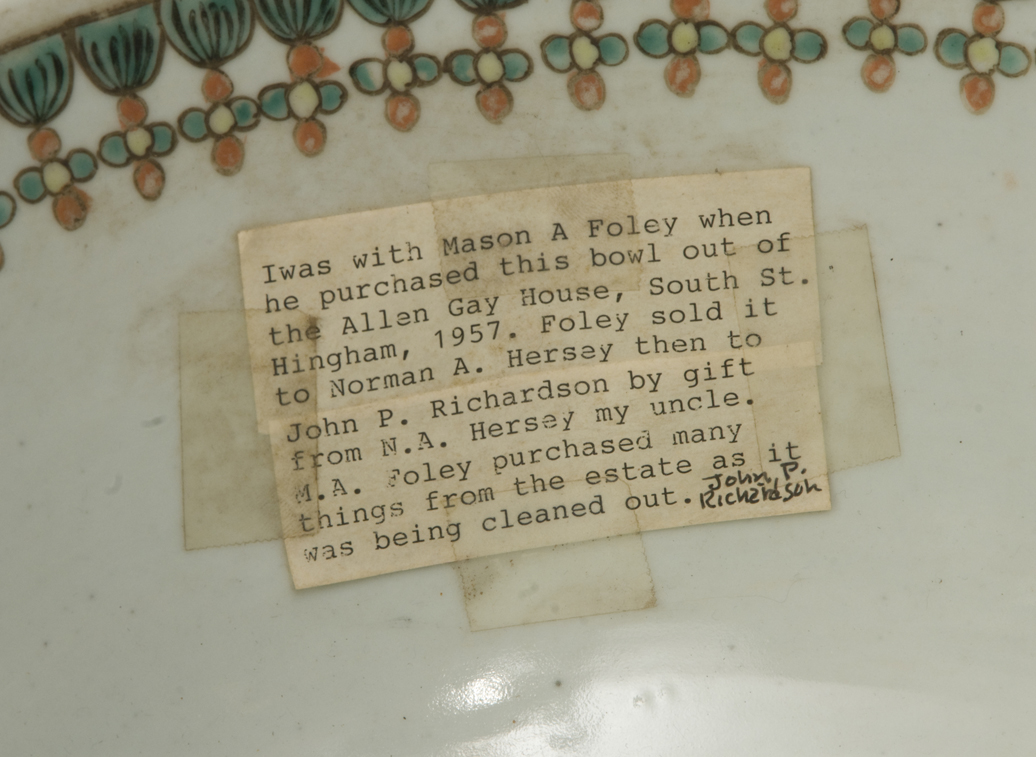 Iwas with Mason A Foley when
he purchased this bowl out of
the Allen Gay House, South St.
Hingham, 1957. Foley sold it
to Norman A. Hersey then to
John P. Richardson by gift
from N.A. Hersey my uncle.
M.A. Foley purchased many
things from the estate as it
was being cleaned out. John P.
Richardson